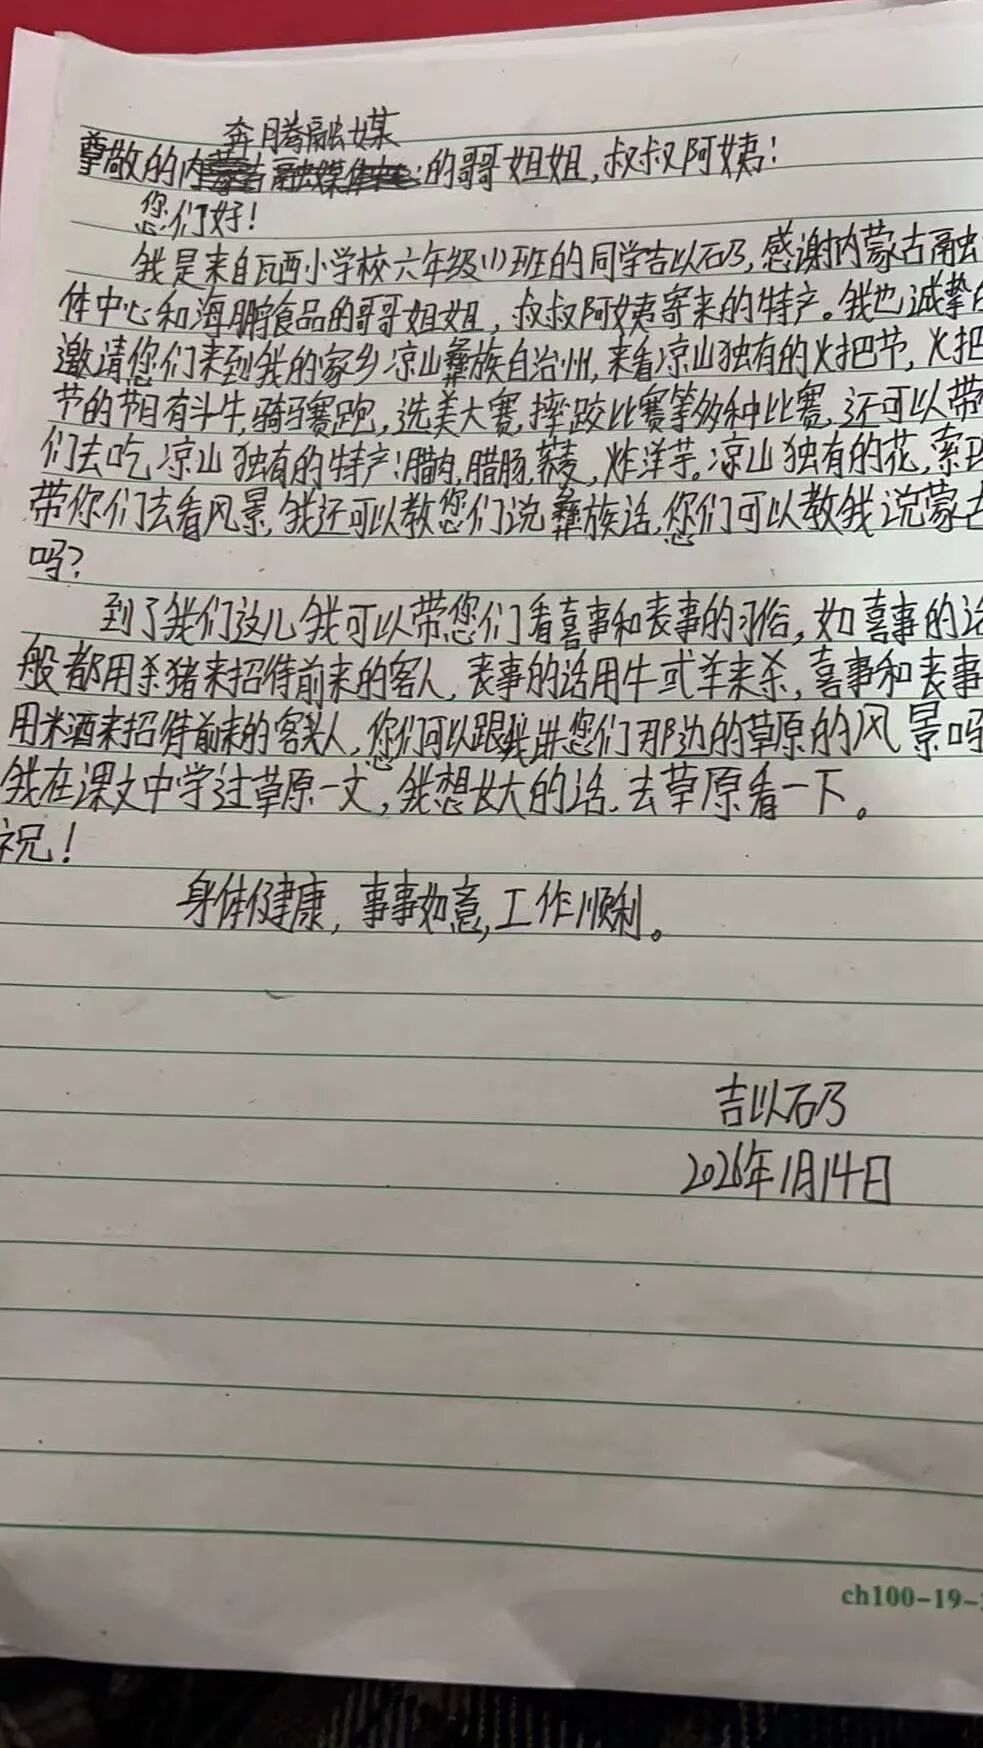 奔腾融媒
尊敬的内蒙古融媒体中心的哥哥姐姐,叔叔阿姨:
您们好!
我是来自瓦西小学校六年级(1)班的同学吉以石乃,感谢内蒙古融
体中心和海鹏食品的哥哥姐姐,叔叔阿姨寄来的特产。我也诚挚
邀请您们来到我的家乡凉山彝族自治州,来看凉山独有的火把节,火把
节的节目有斗牛,骑马赛跑,选美大赛,摔跤比赛等多种比赛,还可以带
们去吃凉山独有的特产:腊肉,腊肠,荞麦,炸洋芋。凉山独有的花,索玛
带你们去看风景,我还可以教您们说彝族话,您们可以教我说蒙古
吗?
到了我们这儿我可以带您们看喜事和丧事的习俗,如喜事的话
般都用杀猪来招待前来的客人,丧事的话用牛或羊来杀,喜事和丧事
用米酒来招待前来的客人,您们可以跟我讲您们那边的草原的风景吗
我在课文中学过草原一文,我想长大的话,去草原看一下。
祝!
身体健康,事事如意,工作顺利。
吉以石乃
2026年1月14日
ch100-19-